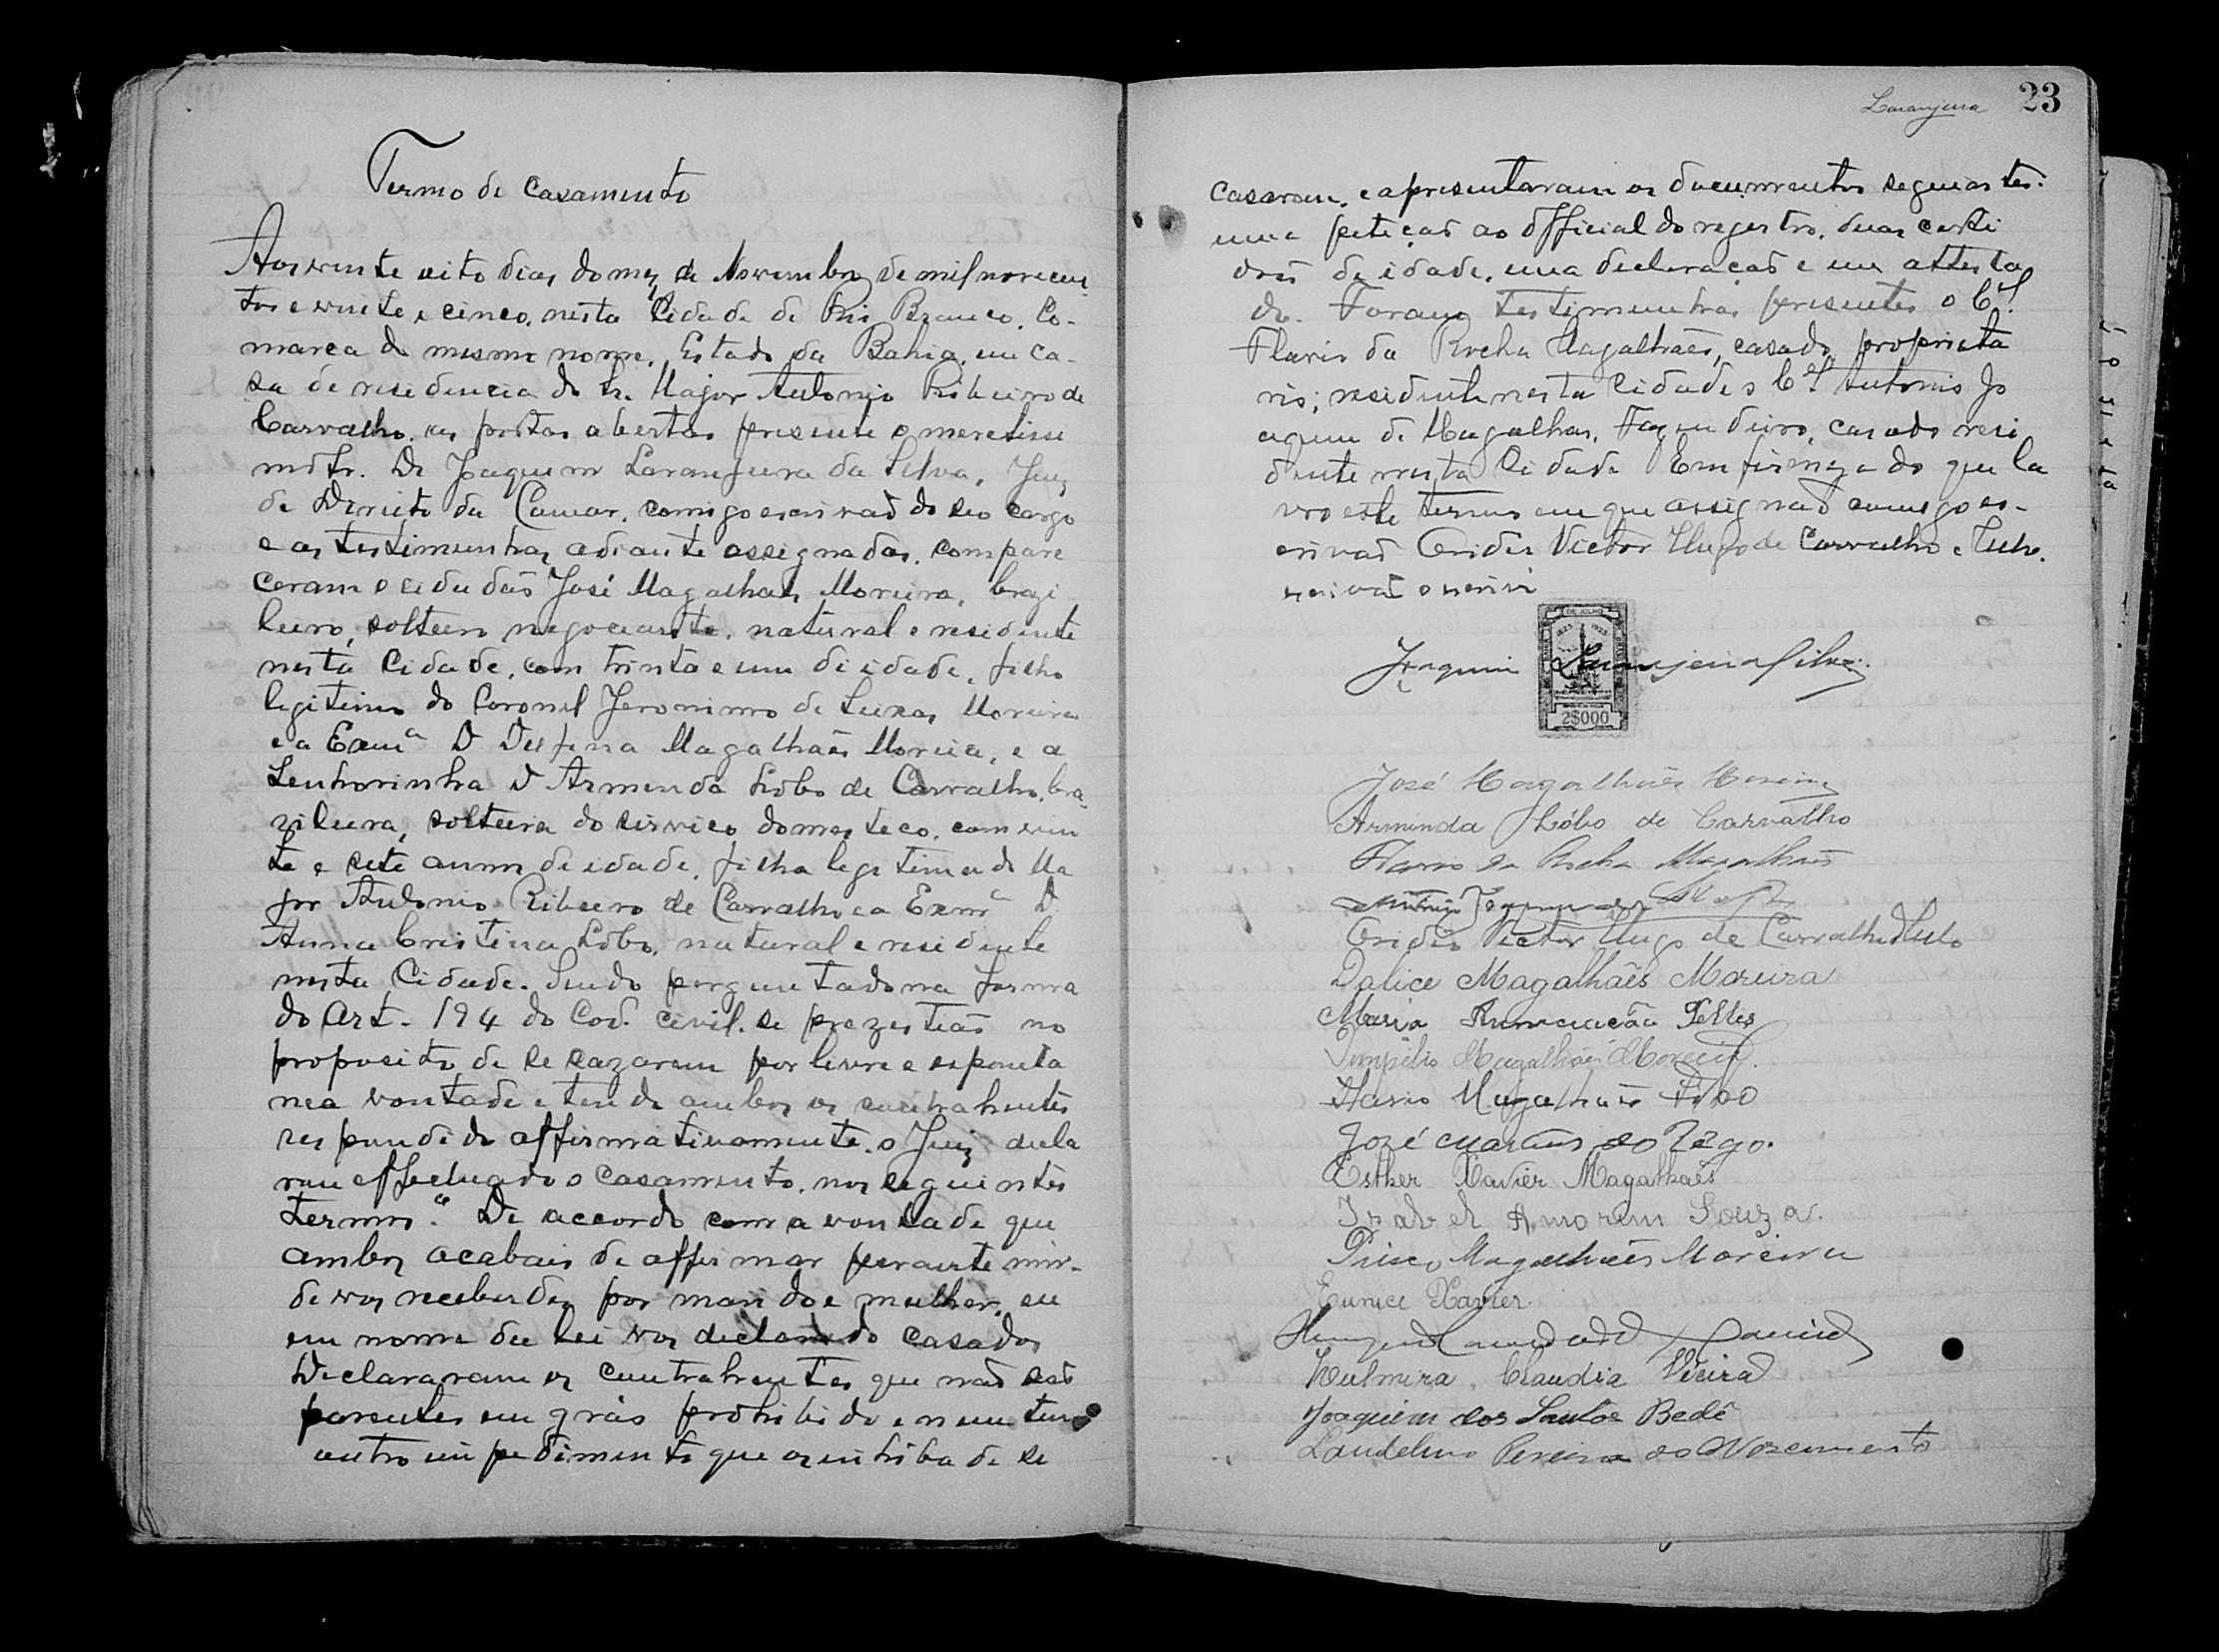 Termo de Casamento
Aos vinte oito dias do mez de Novembro de mil novecen-
tos e vinte e cinco, nesta Cidade de Rio Branco, Co-
marca do mesmo nome, Estado da Bahia, em ca-
sa de residencia do Sr. Major Antonio Ribeiro de
Carvalho, as portas abertas presente o meretissi
mo Sr. Dr Joaquim Laranjeira da Silva, Juiz
de Direito da Comar. comigo escrivaõ do seo cargo
e as testimunhas adiante assignadas, compare
ceram o cidadaõ José Magalhaes Moreira, brazi
leiro, solteiro negociante, natural e residente
nesta Cidade, com trinta e um de idade, filho
legitimo do Coronel Jeronimo de Souza Moreira
e a Exmª D Delfina Magalhães Moreira, e a
Senhorinha D Arminda Lôbo de Carvalho, bra
zileira, solteira do serviço domesteco, com vin
te e sete annos de idade, filha legitima do Ma
jor Antonio Ribeiro de Carvalho e a Exmª D
Anna Cristina Lôbo, natural e residente
nesta Cidade. Sendo perguntado na forma
do Art. 194 do Cod. civil. se prezestiaõ no
proposito de se cazarem por livre e esponta
nea vontade e tendo ambos os contrahentes
respondido affirmativamente, o Juiz decla
rou effectuado o casamento, nos seguintes
termos: "De accordo com a vontade que
ambos acabais de affirmar perante mim.
de vos receberdes por marido e mulher, eu
em nome da Lei vos declaro casados
Declararam os contrahentes que naõ saõ
parentes em gráo prohibido e nem tem
outro impedimento que os inhiba de se
Laranjeira 23
casarem, e apresentaram os documentos seguintes:
uma petiçaõ ao official do registro, duas certi
does de idade, uma declaraçaõ e um attesta
do. Foram testimunhas presentes o Cel
Flavio da Rocha Magalhães, casado, proprieta
rio; residente nesta Cidade o Cel Antonio Jo
aquim de Magalhaes, Fazendeiro, casado resi
dente nesta Cidade Em firmeza do que la
vro este termo em que assignaõ comigo es-
crivaõ Victor Hugo de Carvalho
escrivaõ o escrivi
DE JULHO
1823 1923
2$000
Joaquim Laranjeira Silva.
José Magalhães Moreira
Arminda Lôbo de Carvalho
Flavio da Rocha Magalhães
Antonio Joaquim de
Victor Hugo de Carvalho
Dalice Magalhães Moreira
Maria Annunciacão Telles
Magalhães Moreira.
Flavio Magalhães Filho
José Martins do Rego.
Esther Xavier Magalhães
Isabel Amorim Souza.
Magalhães Moreira
Eunice Xavier
Claudia Vieira
Joaquim dos Santos Bedê
Laudelino Pereira do Nascimento